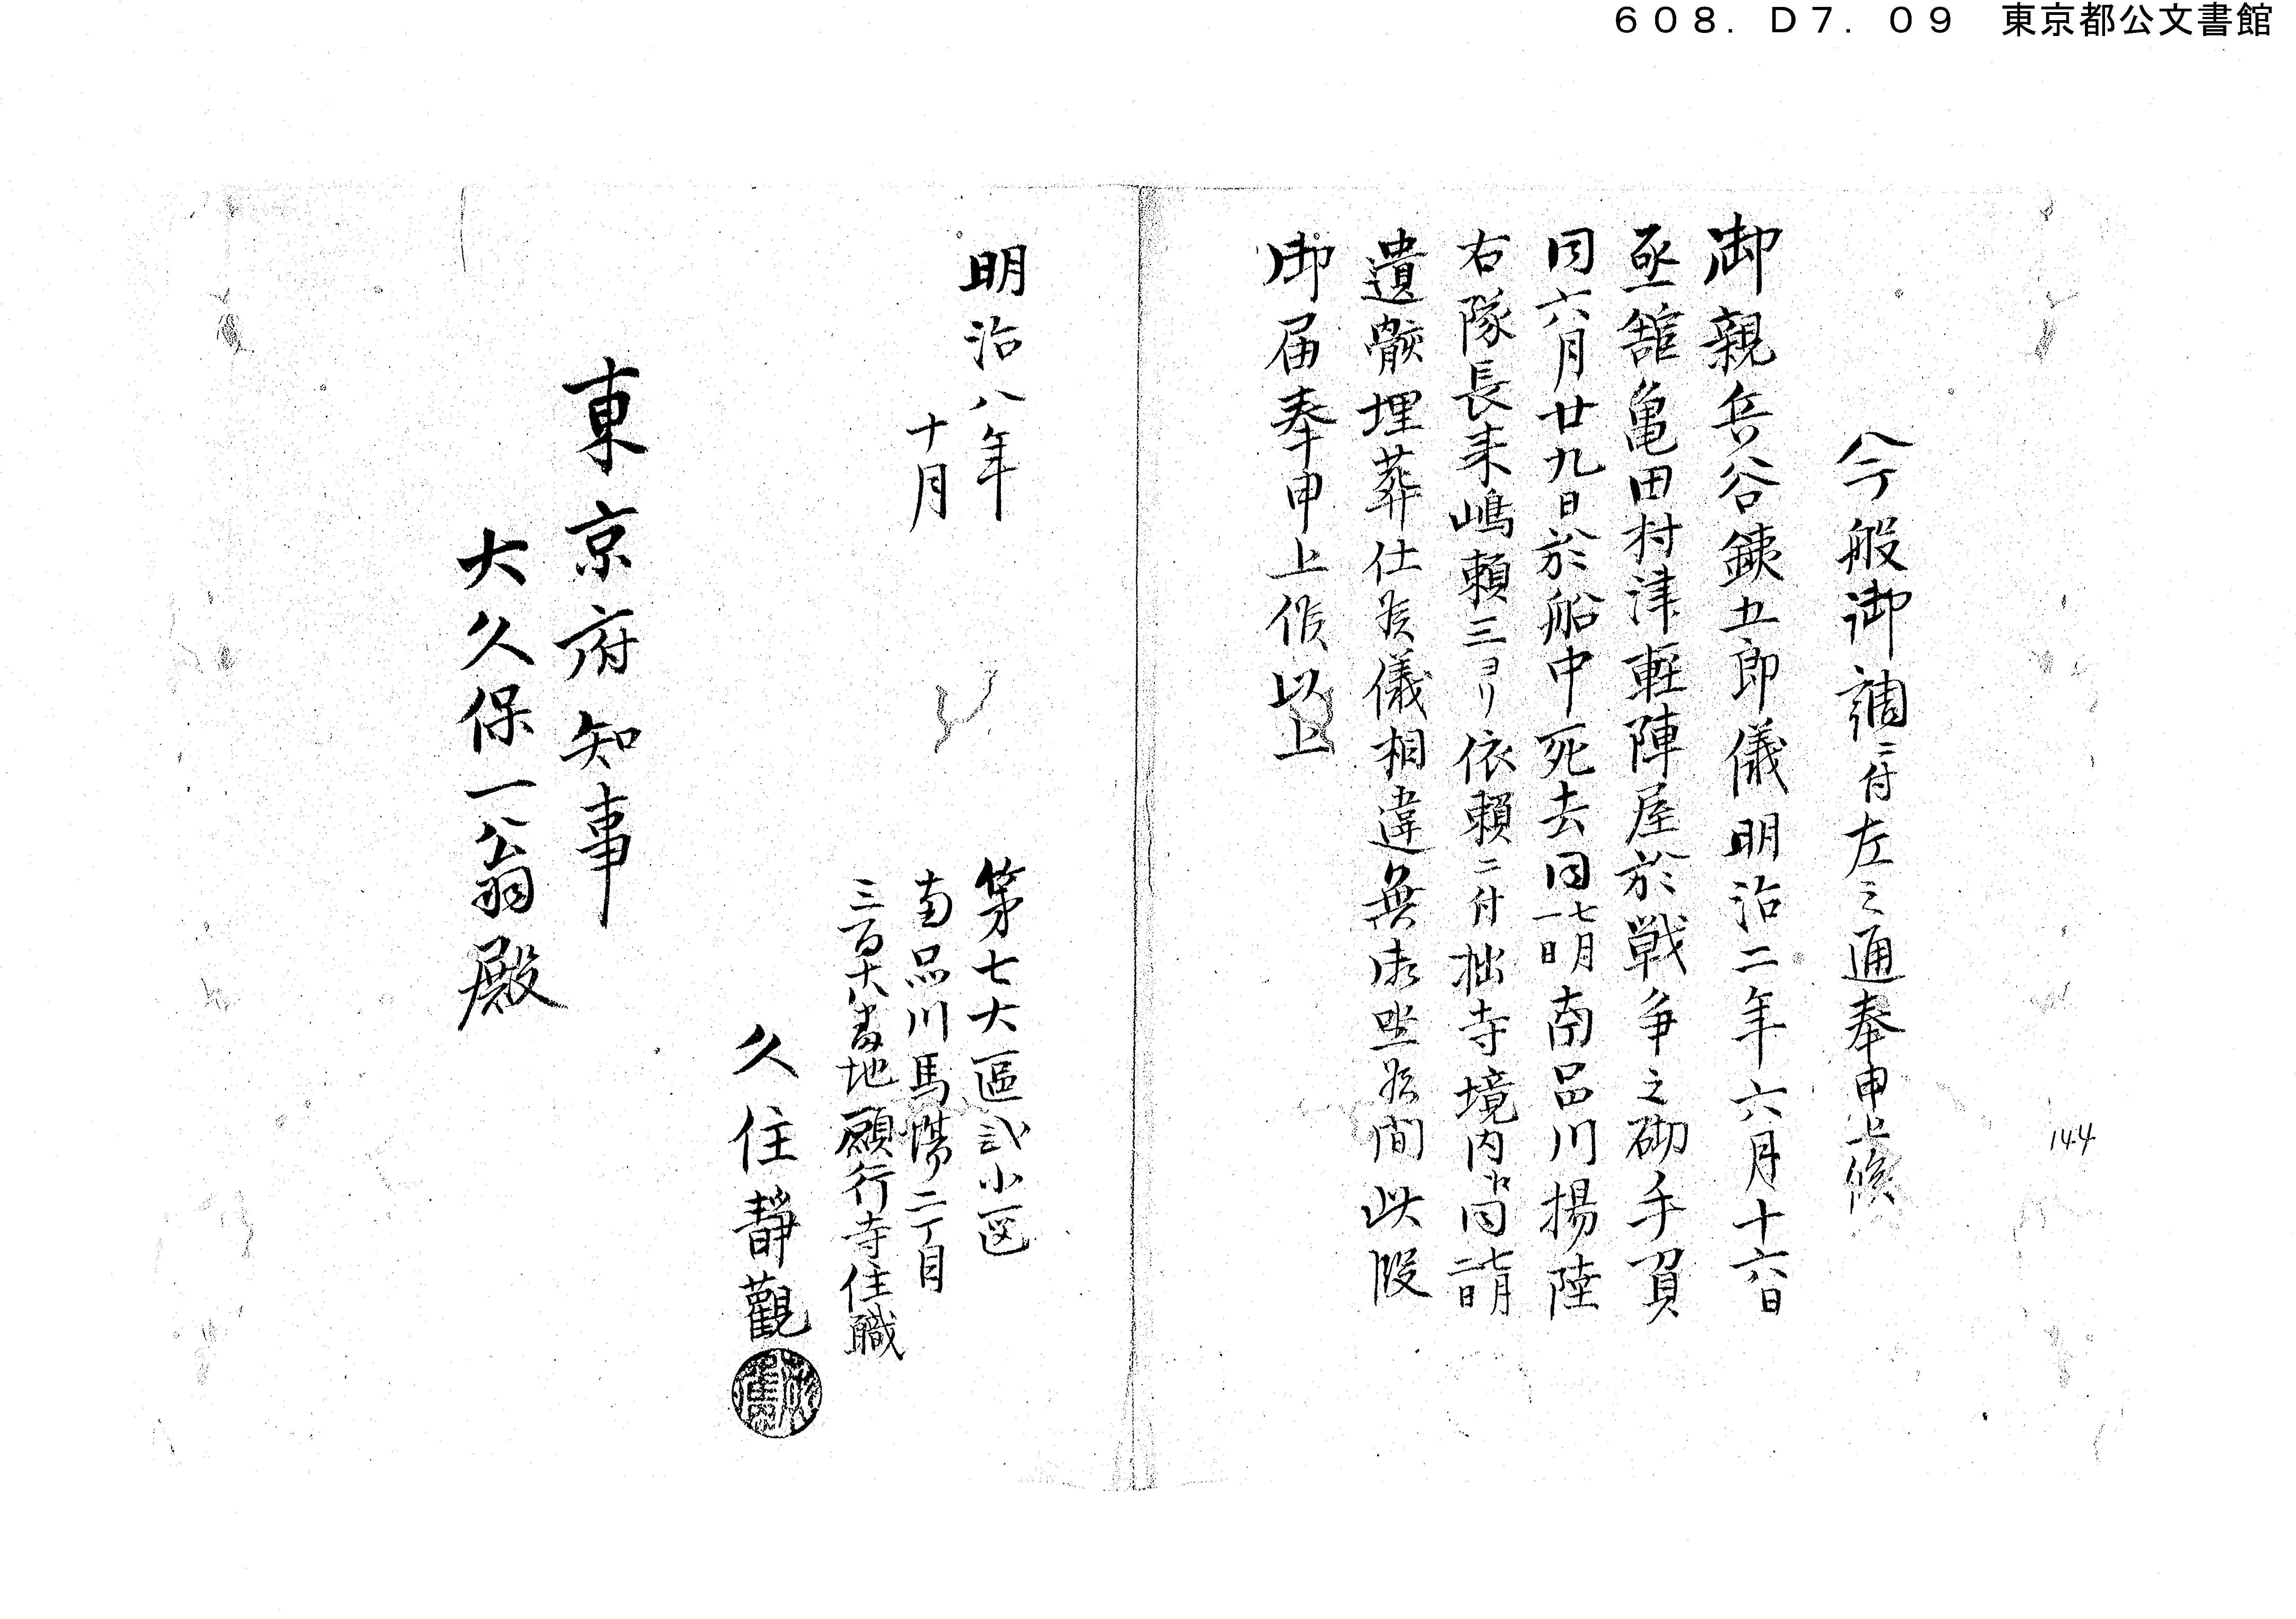 608. D7. 09 東京都公文書館
今般御調ニ付左之通奉申上候
御親兵谷銕五郎儀明治二年六月十六日
亟舘亀田村津軽陣屋於戦争之砌手負
同六月廿九日於船中死去同七月一日南品川揚陸
右隊長来嶋頼三ヨリ依頼ニ付拙寺境内江同七月二日
遺骸埋葬仕候儀相違無御坐候間此段
御届奉申上候以上
144
明治八年
十月
第七大區弐小区
南品川馬場二丁目
三百六番地願行寺住職
久住靜觀
東京府知事
大久保一翁殿